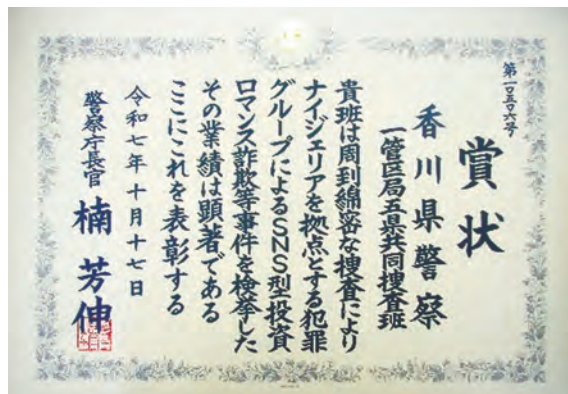 第一〇五〇六号
賞状
香川県警察
一管区局五県共同捜査班
貴班は周到綿密な捜査により
ナイジェリアを拠点とする犯罪
グループによるSNS型投資
ロマンス詐欺等事件を検挙した
その業績は顕著である
ここにこれを表彰する
令和七年十月十七日
警察庁長官 楠 芳伸